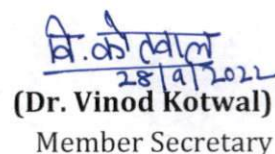 वि. कोतवाल
28/9/2022
(Dr. Vinod Kotwal)
Member Secretary